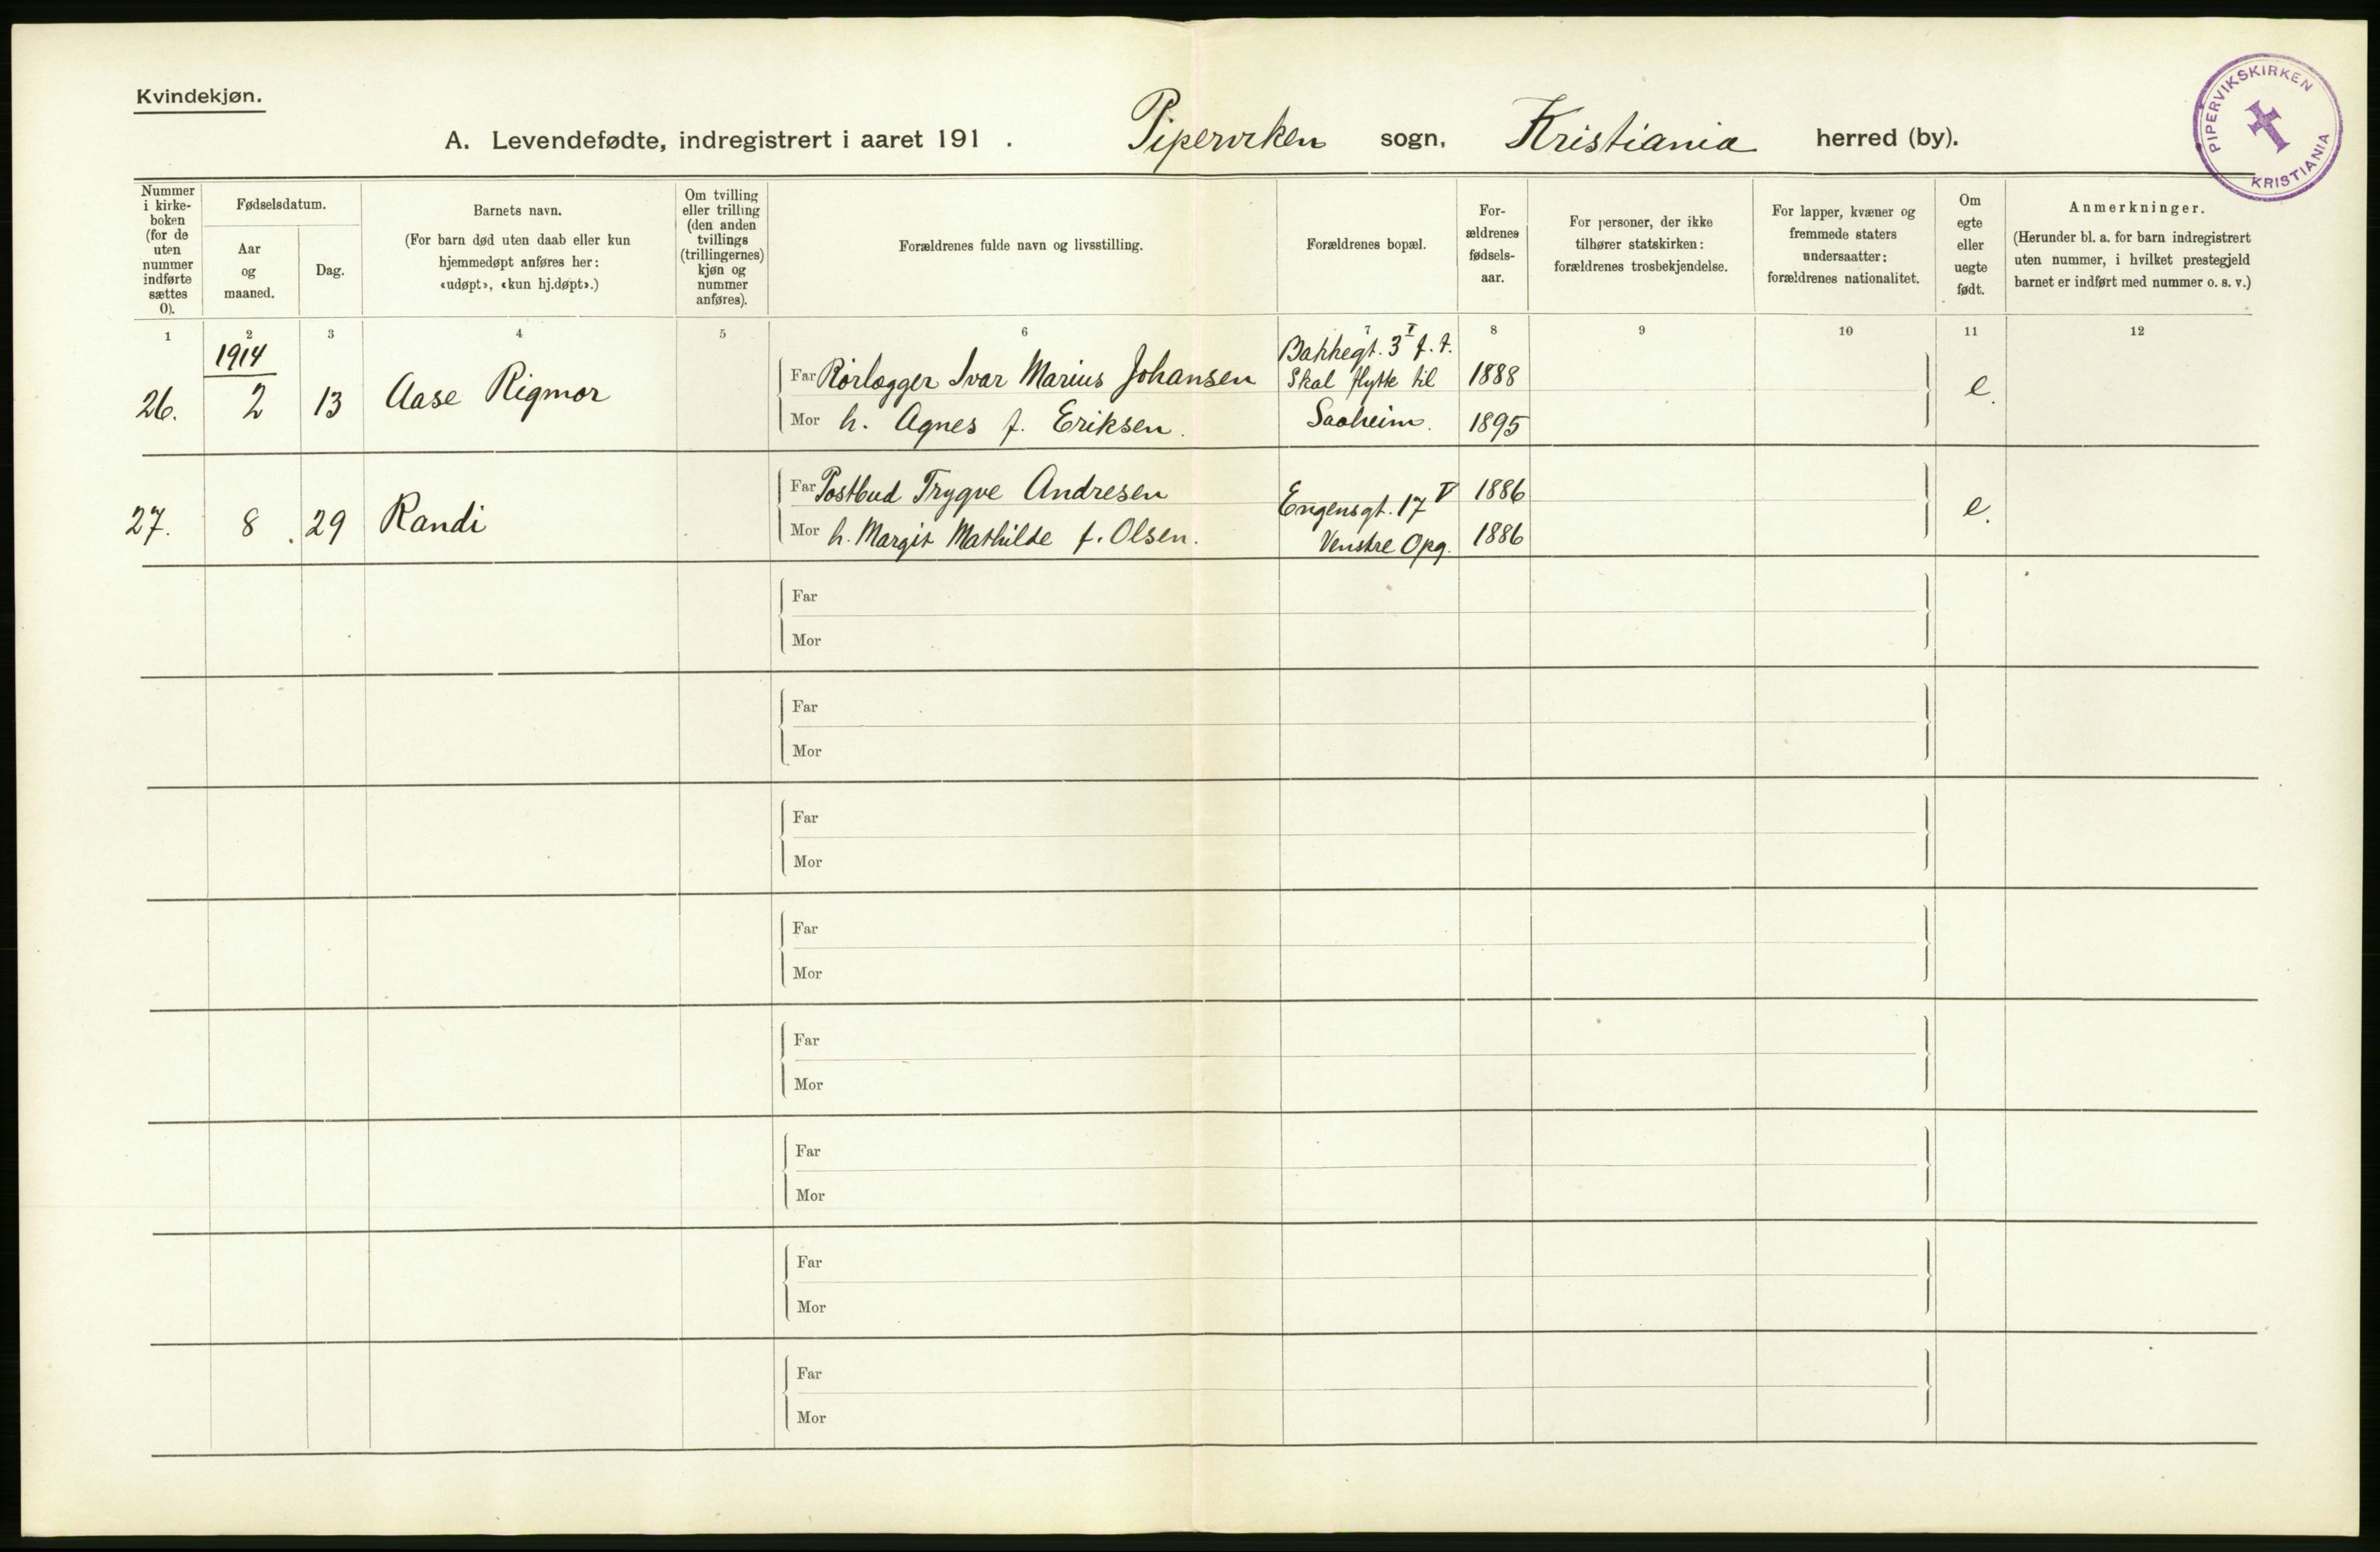 Kvindekjøn.
A. Levendefødte, indregistrert i aaret 191 . Piperviken sogn, Kristiania herred (by).
PIPERVIKSKIRKEN
KRISTIANIA
Nummer
i kirke-
boken
(for de
uten
nummer
indførte
sættes
0).
Fødselsdatum.
Aar
og
maaned.
Dag.
Barnets navn.
(For barn død uten daab eller kun
hjemmedøpt anføres her:
«udøpt», «kun hj.døpt».)
Om tvilling
eller trilling
(den anden
tvillings
(trillingernes)
kjøn og
nummer
anføres).
Forældrenes fulde navn og livsstilling.
Forældrenes bopæl.
For-
ældrenes
fødsels-
aar.
For personer, der ikke
tilhører statskirken:
forældrenes trosbekjendelse.
For lapper, kvæner og
fremmede staters
undersaatter:
forældrenes nationalitet.
Om
egte
eller
uegte
født.
Anmerkninger.
(Herunder bl. a. for barn indregistrert
uten nummer, i hvilket prestegjeld
barnet er indført med nummer o. s. v.)
1 2 3 4 5 6 7 8 9 10 11 12
1914
26. 2 13 Aase Rigmor
Far Rørlægger Ivar Marius Johansen
Mor h. Agnes f. Eriksen.
Bakkegt. 3 I f. t.
Skal flytte til
Saaheim.
1888
1895
e.
27. 8 29 Randi
Far Postbud Trygve Andresen
Mor h. Margit Mathilde f. Olsen.
Engensgt. 17 V
Venstre Opg.
1886
1886
e.
Far
Mor
Far
Mor
Far
Mor
Far
Mor
Far
Mor
Far
Mor
Far
Mor
Far
Mor